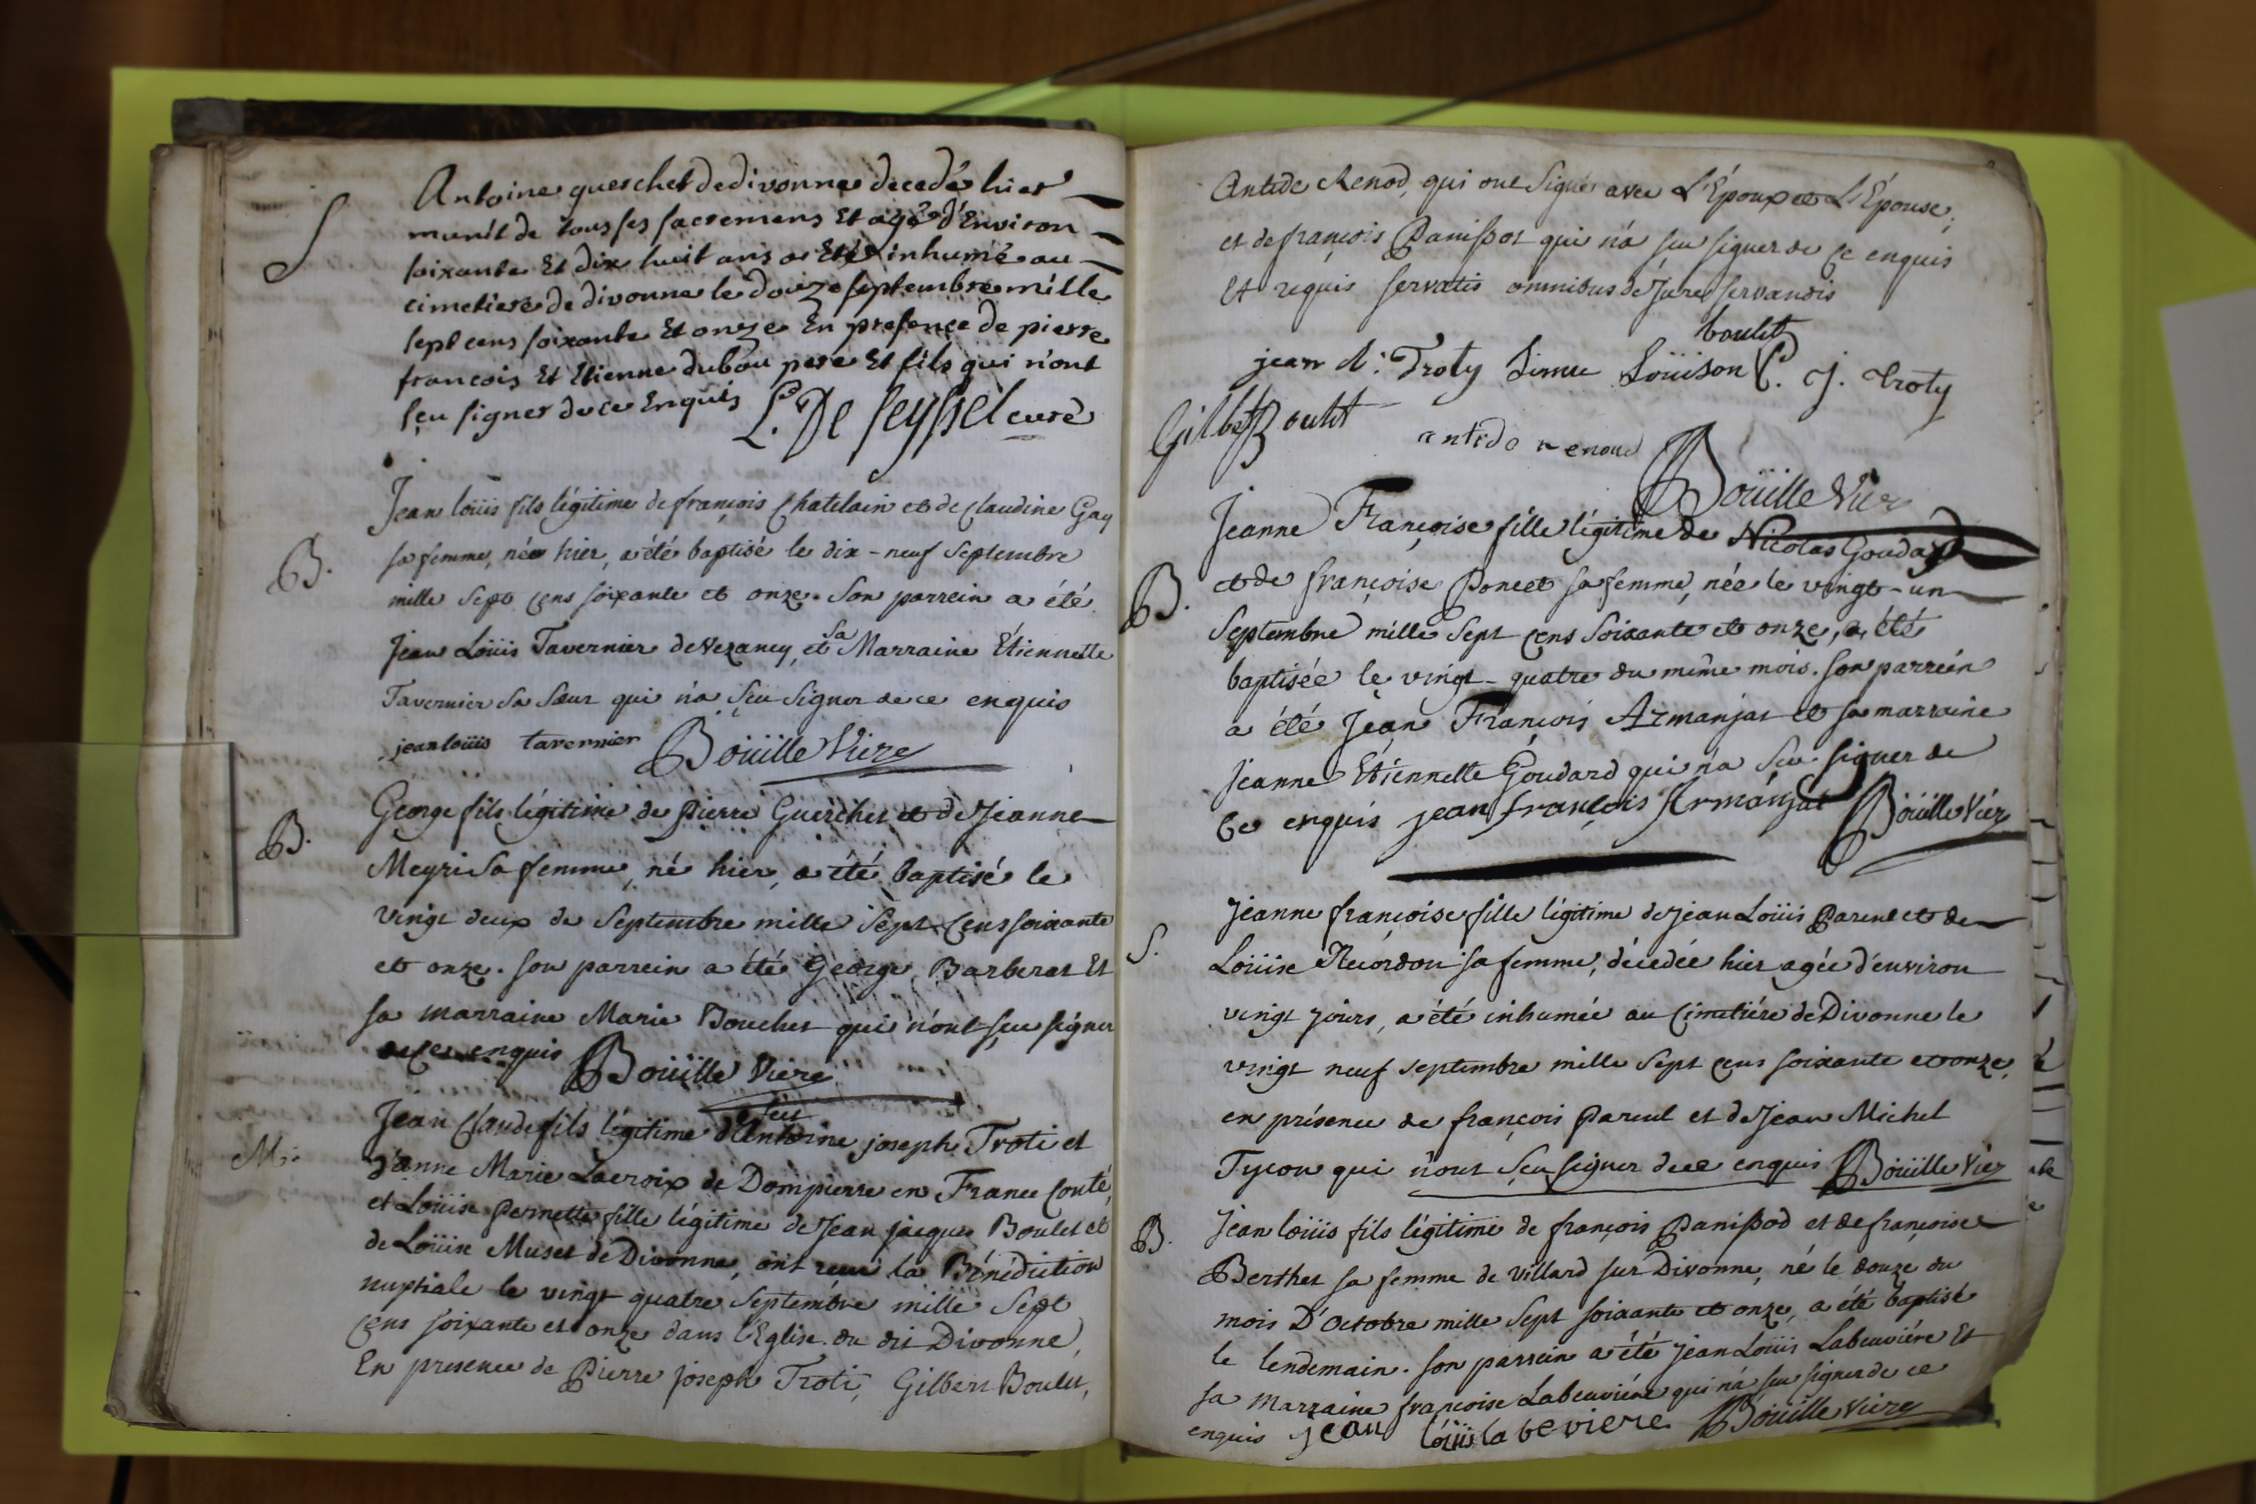 S
Antoine gueschet de divonne decedé hier
munit de tous ses sacremens Et agé d'Environ
soixante Et dix huit ans a Eté inhumé au
cimetiere de divonne le douze septembre mille
sept cens soixante Et onze En presence de pierre
francois Et Etienne dubou pere Et fils qui n'ont
sçu signer de ce Enquis L. De Seyssel curé
Jean loüis fils légitime de françois Chatelain et de Claudine Gay
B.
sa femme, né hier, a été baptisé le dix-neuf Septembre
mille Sept cens soixante et onze. Son parrein a été
Jean Loüis Tavernier de Vezancy, et sa Marraine Étiennette
Tavernier Sa Sœur qui n'a sçu Signer de ce enquis
jean loüis tavernier Boüille Vicre
George fils légitime de Pierre Guerchet et de Jeanne
B.
Meyri Sa femme, né hier, a été baptisé le
vingt deux de Septembre mille Sept Cens soixante
et onze. Son parrein a été George Barberat Et
sa marraine Marie Bouchet qui n'ont sçu signer
de ce enquis Boüille Vicre
feu
Jean Claude fils légitime d'Antoine joseph Troti et
M.
d'anne Marie Lacroix de Dompierre en Franee Conté,
et Loüise Pernette fille légitime de Jean jacques Boulet et
de Loüise Muset de Divonne, ont reçu la Bénédiction
nuptiale le vingt quatre Septembre mille Sept
Cens soixante et onze dans l'Eglise du dit Divonne,
En presence de Pierre joseph Troti, Gilbert Boulet,
Antide Renod, qui ont Signés avec L'Époux et L'Épouse,
et de françois Panissot qui n'a sçu signer de ce enquis
Et requis servatis omnibus de Jure servandis
jean Troty Loüison boulet J. Troty
Gilbt Boulit
antide renoud Boüille Vicr
Jeanne Françoise fille légitime de Nicolas Goudard
B.
et de françoise Poncet sa femme, née le vingt-un
Septembre mille Sept cens Soixante et onze, a été
baptisée le vingt-quatre du même mois. Son parrein
a été Jean François Armanjat et sa marraine
Jeanne Etiennette Goudard qui n'a sçu signer de
Ce enquis jean françois Armanjat Boüille Vicr
Jeanne françoise fille légitime de Jean Loüis Parent et de
S.
Loüise Récordon sa femme, décedée hier agée d'environ
vingt jours, a été inhumée au Cimetiére de Divonne le
vingt neuf septembre mille Sept cens soixante et onze,
en présence de françois Parent et de Jean Michel
Tycon qui n'ont sçu signer de ce enquis Boüille Vicr
Jean loüis fils légitime de françois Panissod et de françoise
B.
Berthet sa femme de Villard sur Divonne, né le douze du
mois D'Octobre mille Sept soixante et onze, a été baptisé
le lendemain. Son parrein a été Jean Loüis Labeuviére Et
sa Marraine françoise Labeuviére qui n'a sçu signer de ce
enquis jean loüis la beviere Boüille Vicre